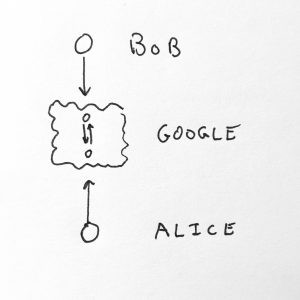 BOB
GOOGLE
ALICE